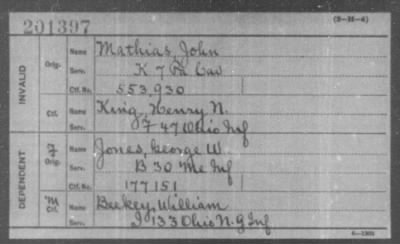 (3-H-4)
201397
INVALID
Orig.
Name Mathias, John
Serv. K 7 Pa Cav
Ctf. No. 553,930
Ctf.
Name King, Henry N.
Serv. F 47 Ohio Inf
DEPENDENT
F
Orig.
Name Jones, George W.
Serv. B 30 Me Inf
Ctf. No. 177151
M
Ctf.
Name Beekey, William
Serv. I 133 Ohio N.G Inf